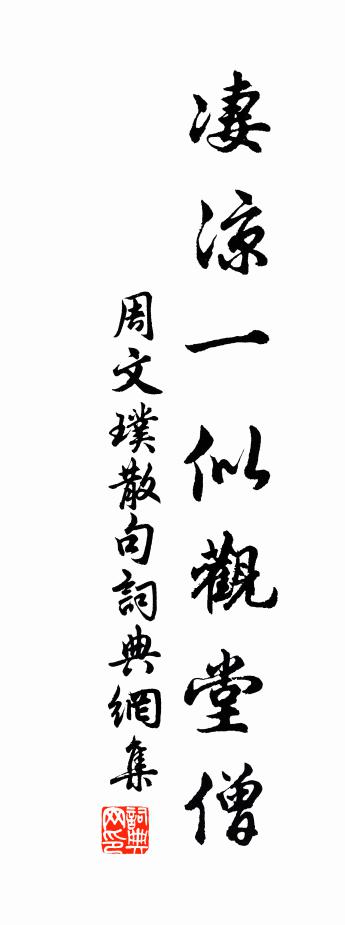 凄涼一似觀堂僧
周文璞散句詞典網集
詞典网印